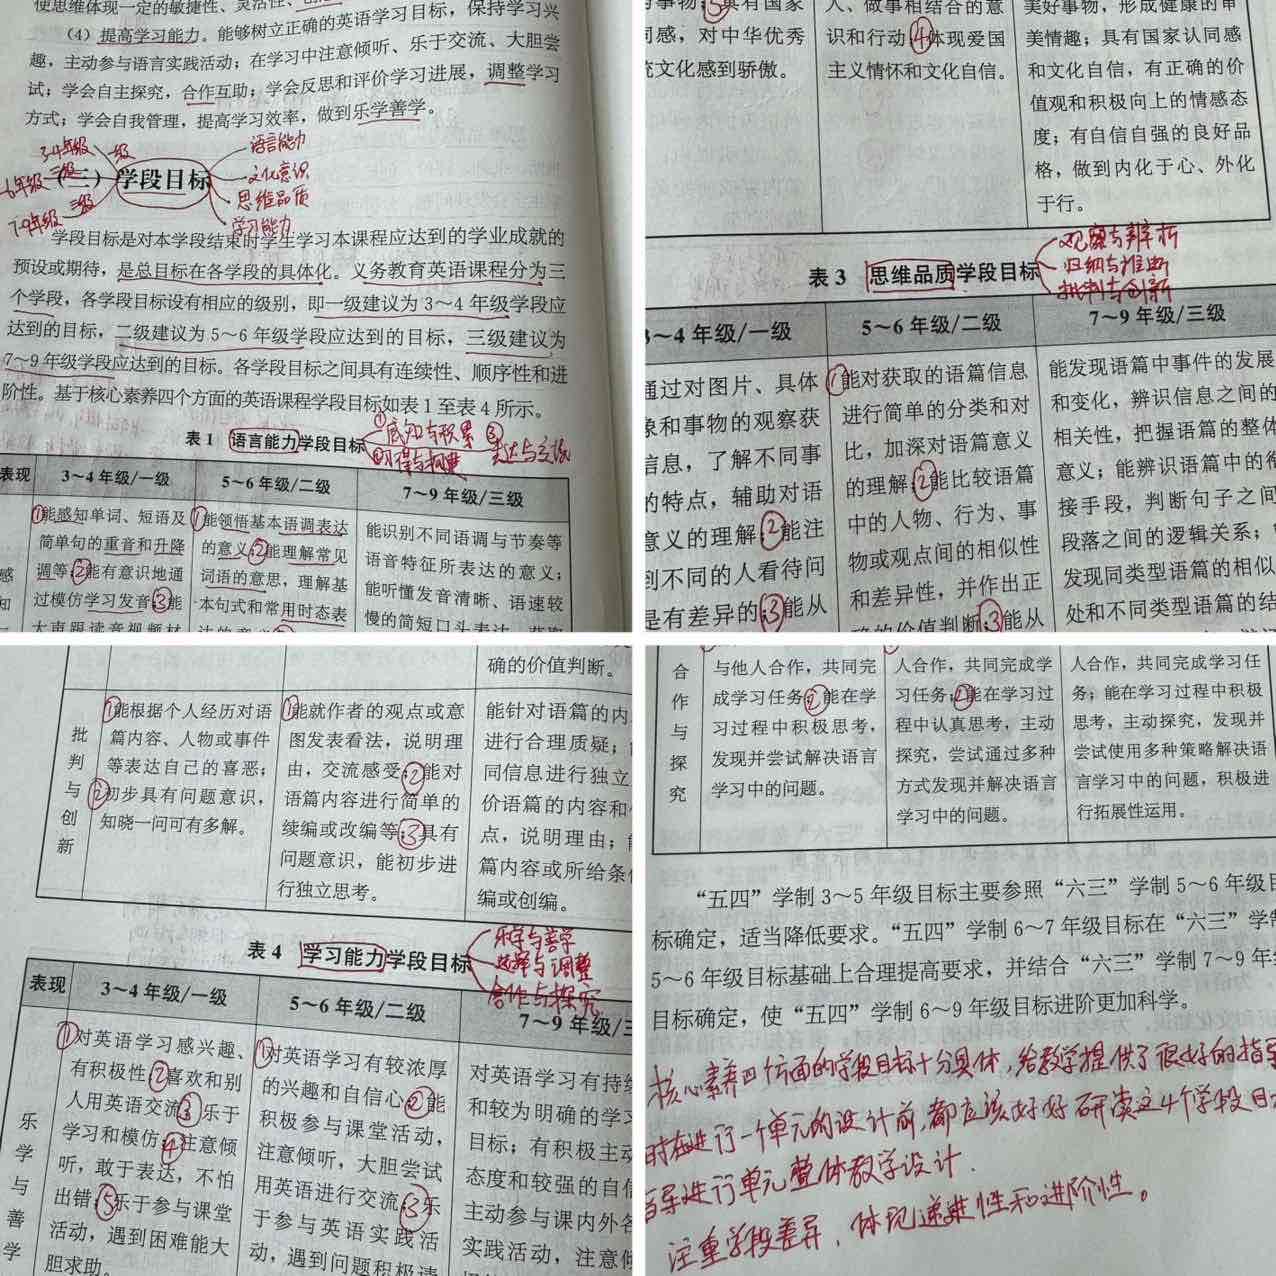 使思维体现一定的敏捷性、灵活性、
(4) 提高学习能力。能够树立正确的英语学习目标，保持学习兴
趣，主动参与语言实践活动；在学习中注意倾听、乐于交流、大胆尝
试；学会自主探究，合作互助；学会反思和评价学习进展，调整学习
方式；学会自我管理，提高学习效率，做到乐学善学。
3-4年级 一级
6年级 二级
7-9年级 三级
(三) 学段目标
语言能力
文化意识
思维品质
学习能力
学段目标是对本学段结束时学生学习本课程应达到的学业成就的
预设或期待，是总目标在各学段的具体化。义务教育英语课程分为三
个学段，各学段目标设有相应的级别，即一级建议为 3～4 年级学段应
达到的目标，二级建议为 5～6 年级学段应达到的目标，三级建议为
7～9 年级学段应达到的目标。各学段目标之间具有连续性、顺序性和进
阶性。基于核心素养四个方面的英语课程学段目标如表 1 至表 4 所示。
表 1 语言能力学段目标
①感知与积累 ③表达与交流
②习得与建构
表现 3～4 年级/一级 5～6 年级/二级 7～9 年级/三级
感
知
①能感知单词、短语及
简单句的重音和升降
调等；②能有意识地通
过模仿学习发音；③能
大声跟读音视频材
①能领悟基本语调表达
的意义；②能理解常见
词语的意思，理解基
本句式和常用时态表
达的意义
能识别不同语调与节奏等
语音特征所表达的意义；
能听懂发音清晰、语速较
慢的简短口头表达，获取
事物；⑤具有国家
同感，对中华优秀
文化感到骄傲。
人、做事相结合的意
识和行动；④体现爱国
主义情怀和文化自信。
美好事物，形成健康的审
美情趣；具有国家认同感
和文化自信，有正确的价
值观和积极向上的情感态
度；有自信自强的良好品
格，做到内化于心、外化
于行。
表 3 思维品质学段目标
观察与辨析
归纳与推断
批判与创新
3～4 年级/一级 5～6 年级/二级 7～9 年级/三级
通过对图片、具体
象和事物的观察获
信息，了解不同事
的特点，辅助对语
意义的理解；②能注
到不同的人看待问
是有差异的；③能从
①能对获取的语篇信息
进行简单的分类和对
比，加深对语篇意义
的理解；②能比较语篇
中的人物、行为、事
物或观点间的相似性
和差异性，并作出正
确的价值判断；③能从
能发现语篇中事件的发展
和变化，辨识信息之间的
相关性，把握语篇的整体
意义；能辨识语篇中的衔
接手段，判断句子之间
段落之间的逻辑关系；
发现同类型语篇的相似
处和不同类型语篇的结
确的价值判断。
批
判
与
创
新
①能根据个人经历对语
篇内容、人物或事件
等表达自己的喜恶；
②初步具有问题意识，
知晓一问可有多解。
①能就作者的观点或意
图发表看法，说明理
由，交流感受；②能对
语篇内容进行简单的
续编或改编等；③具有
问题意识，能初步进
行独立思考。
能针对语篇的内
进行合理质疑；
同信息进行独立
价语篇的内容和
点，说明理由；
篇内容或所给条
编或创编。
表 4 学习能力学段目标
乐学与善学
选择与调整
合作与探究
表现 3～4 年级/一级 5～6 年级/二级 7～9 年级/三
乐
学
与
善
学
①对英语学习感兴趣、
有积极性；②喜欢和别
人用英语交流；③乐于
学习和模仿；④注意倾
听，敢于表达，不怕
出错；⑤乐于参与课堂
活动，遇到困难能大
胆求助。
①对英语学习有较浓厚
的兴趣和自信心；②能
积极参与课堂活动，
注意倾听，大胆尝试
用英语进行交流；③乐
于参与英语实践活
动，遇到问题积极请
对英语学习有持续
和较为明确的学习
目标；有积极主动
态度和较强的自信
主动参与课内外各
实践活动，注意倾
合
作
与
探
究
与他人合作，共同完
成学习任务；②能在学
习过程中积极思考，
发现并尝试解决语言
学习中的问题。
人合作，共同完成学
习任务；②能在学习过
程中认真思考，主动
探究，尝试通过多种
方式发现并解决语言
学习中的问题。
人合作，共同完成学习任
务；能在学习过程中积极
思考，主动探究，发现并
尝试使用多种策略解决语
言学习中的问题，积极进
行拓展性运用。
“五四”学制 3～5 年级目标主要参照“六三”学制 5～6 年级目
标确定，适当降低要求。“五四”学制 6～7 年级目标在“六三”学制
5～6 年级目标基础上合理提高要求，并结合“六三”学制 7～9 年级
目标确定，使“五四”学制 6～9 年级目标进阶更加科学。
核心素养四个方面的学段目标十分具体，给教学提供了很好的指导
时在进行一个单元的设计前，都应该好好研读这4个学段目标
指导进行单元整体教学设计.
注重学段差异，体现递进性和进阶性。